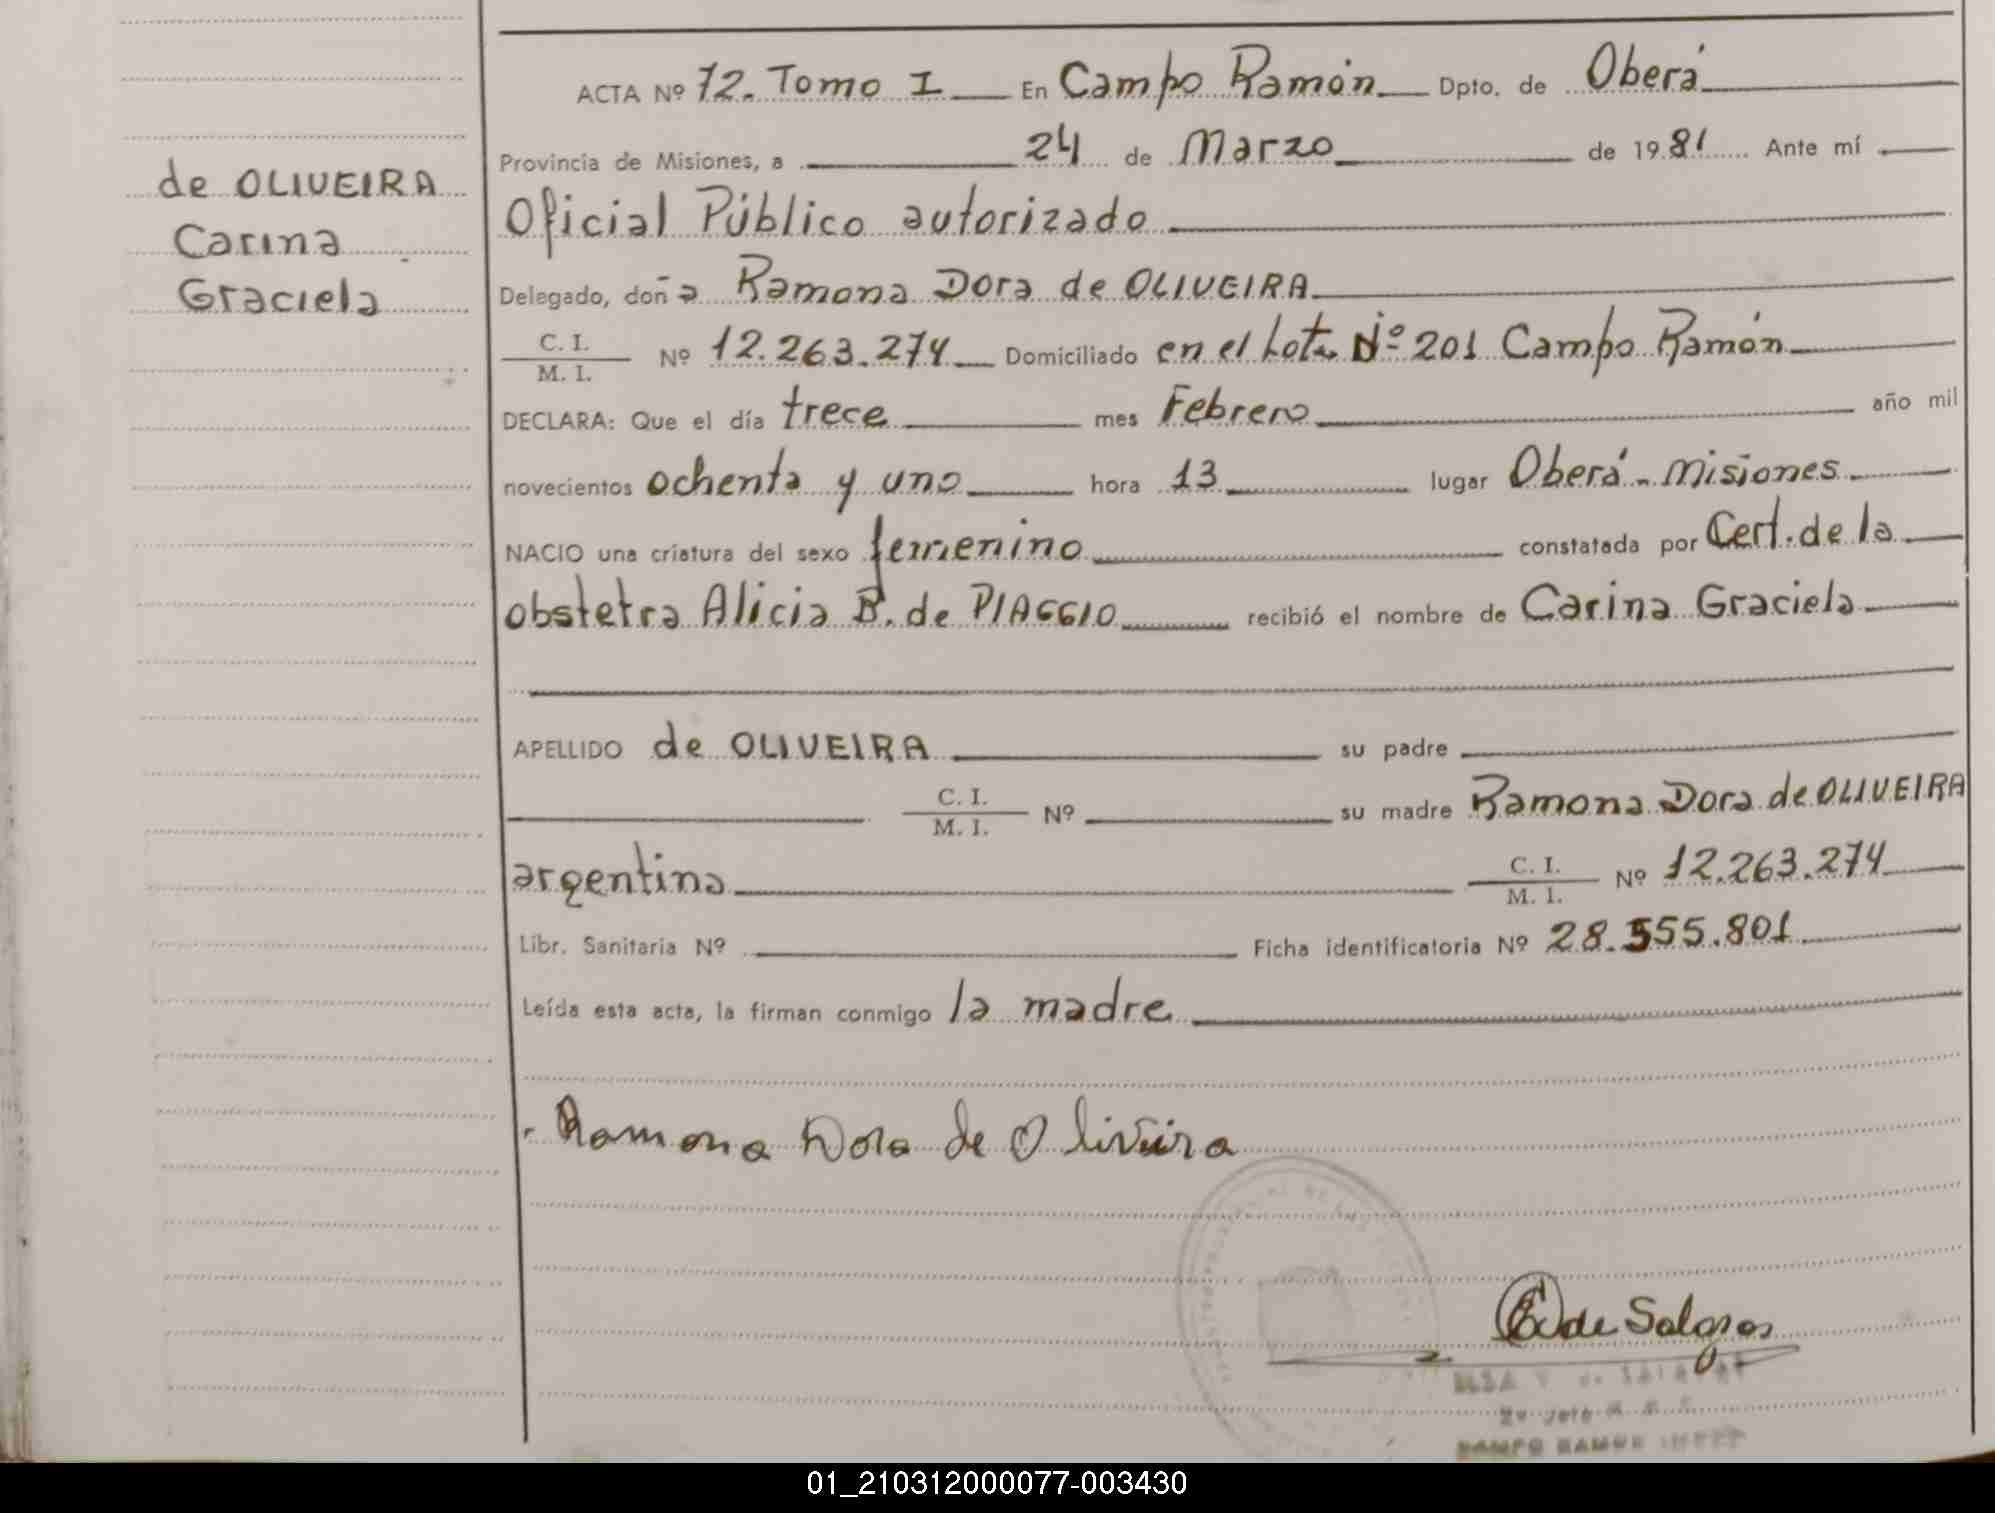 ACTA Nº 72. Tomo I En Campo Ramón Dpto. de Oberá
Provincia de Misiones, a 24 de Marzo de 1981 Ante mí
de OLIVEIRA
Carina
Graciela
Oficial Público autorizado
Delegado, doña Ramona Dora de OLIVEIRA
C. I.
M. I. Nº 12.263.274 Domiciliado en el Lote Nº 201 Campo Ramón
DECLARA: Que el día trece mes Febrero año mil
novecientos ochenta y uno hora 13 lugar Oberá - Misiones
NACIO una criatura del sexo femenino constatada por Cert. de la
obstetra Alicia B. de PIAGGIO recibió el nombre de Carina Graciela
APELLIDO de OLIVEIRA su padre
C. I.
M. I. Nº su madre Ramona Dora de OLIVEIRA
argentina C. I.
M. I. Nº 12.263.274
Libr. Sanitaria Nº Ficha identificatoria Nº 28.555.801
Leída esta acta, la firman conmigo la madre
Ramona Dora de Oliveira
de Salazar
CAMPO RAMON
01_210312000077-003430